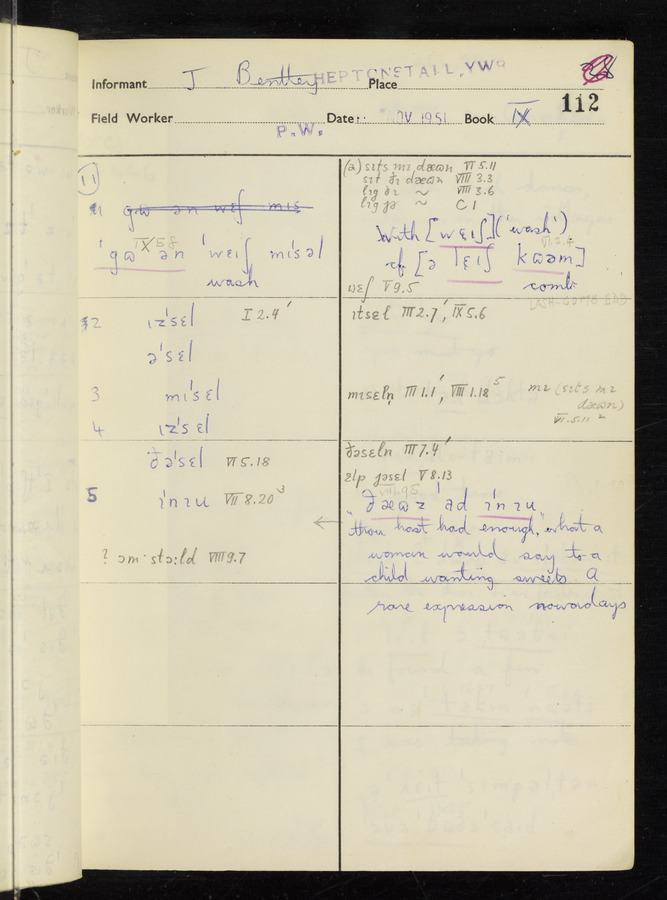 Informant J Bentley HEPTONSTALL, YW9 Place
112
Field Worker P.W. Date: NOV 1951 Book IX
11
gɷ ən wɛʃ mɪs
'gɷ ən 'wɛɪʃ mɪ'səl
wash
2 ɪz'sɛl I 2.4'
ə'sɛl
3 mɪ'sɛl
4 ɪz'sɛl
ðə'sɛl VI 5.18
5 ɪ'nɪu VII 8.20³
? əm·stɔ:ld VIII 9.7
(a) sɪts mɪ dæɷn VI 5.11
sɪt ðɪ dæɷn VIII 3.3
lɪg ðɪ ~ VIII 3.6
lɪg jə ~ C I
With [wɛɪʃ] ('wash')
cf [ə lɛɪʃ kɷəm]
comb
wɛʃ V 9.5
ɪtsɛl III 2.7', IX 5.6
mɪsɛln̩ III 1.1', VIII 1.18⁵ mɪ (sɪts mɪ
dæɷn)
VI.5.11²
ðəsɛln III 7.4'
ɛlp jəsɛl V 8.13
"ðæɷz 'ad ɪ'nɪu"
"thou hast had enough," what a
woman would say to a
child wanting sweets. A
rare expression nowadays